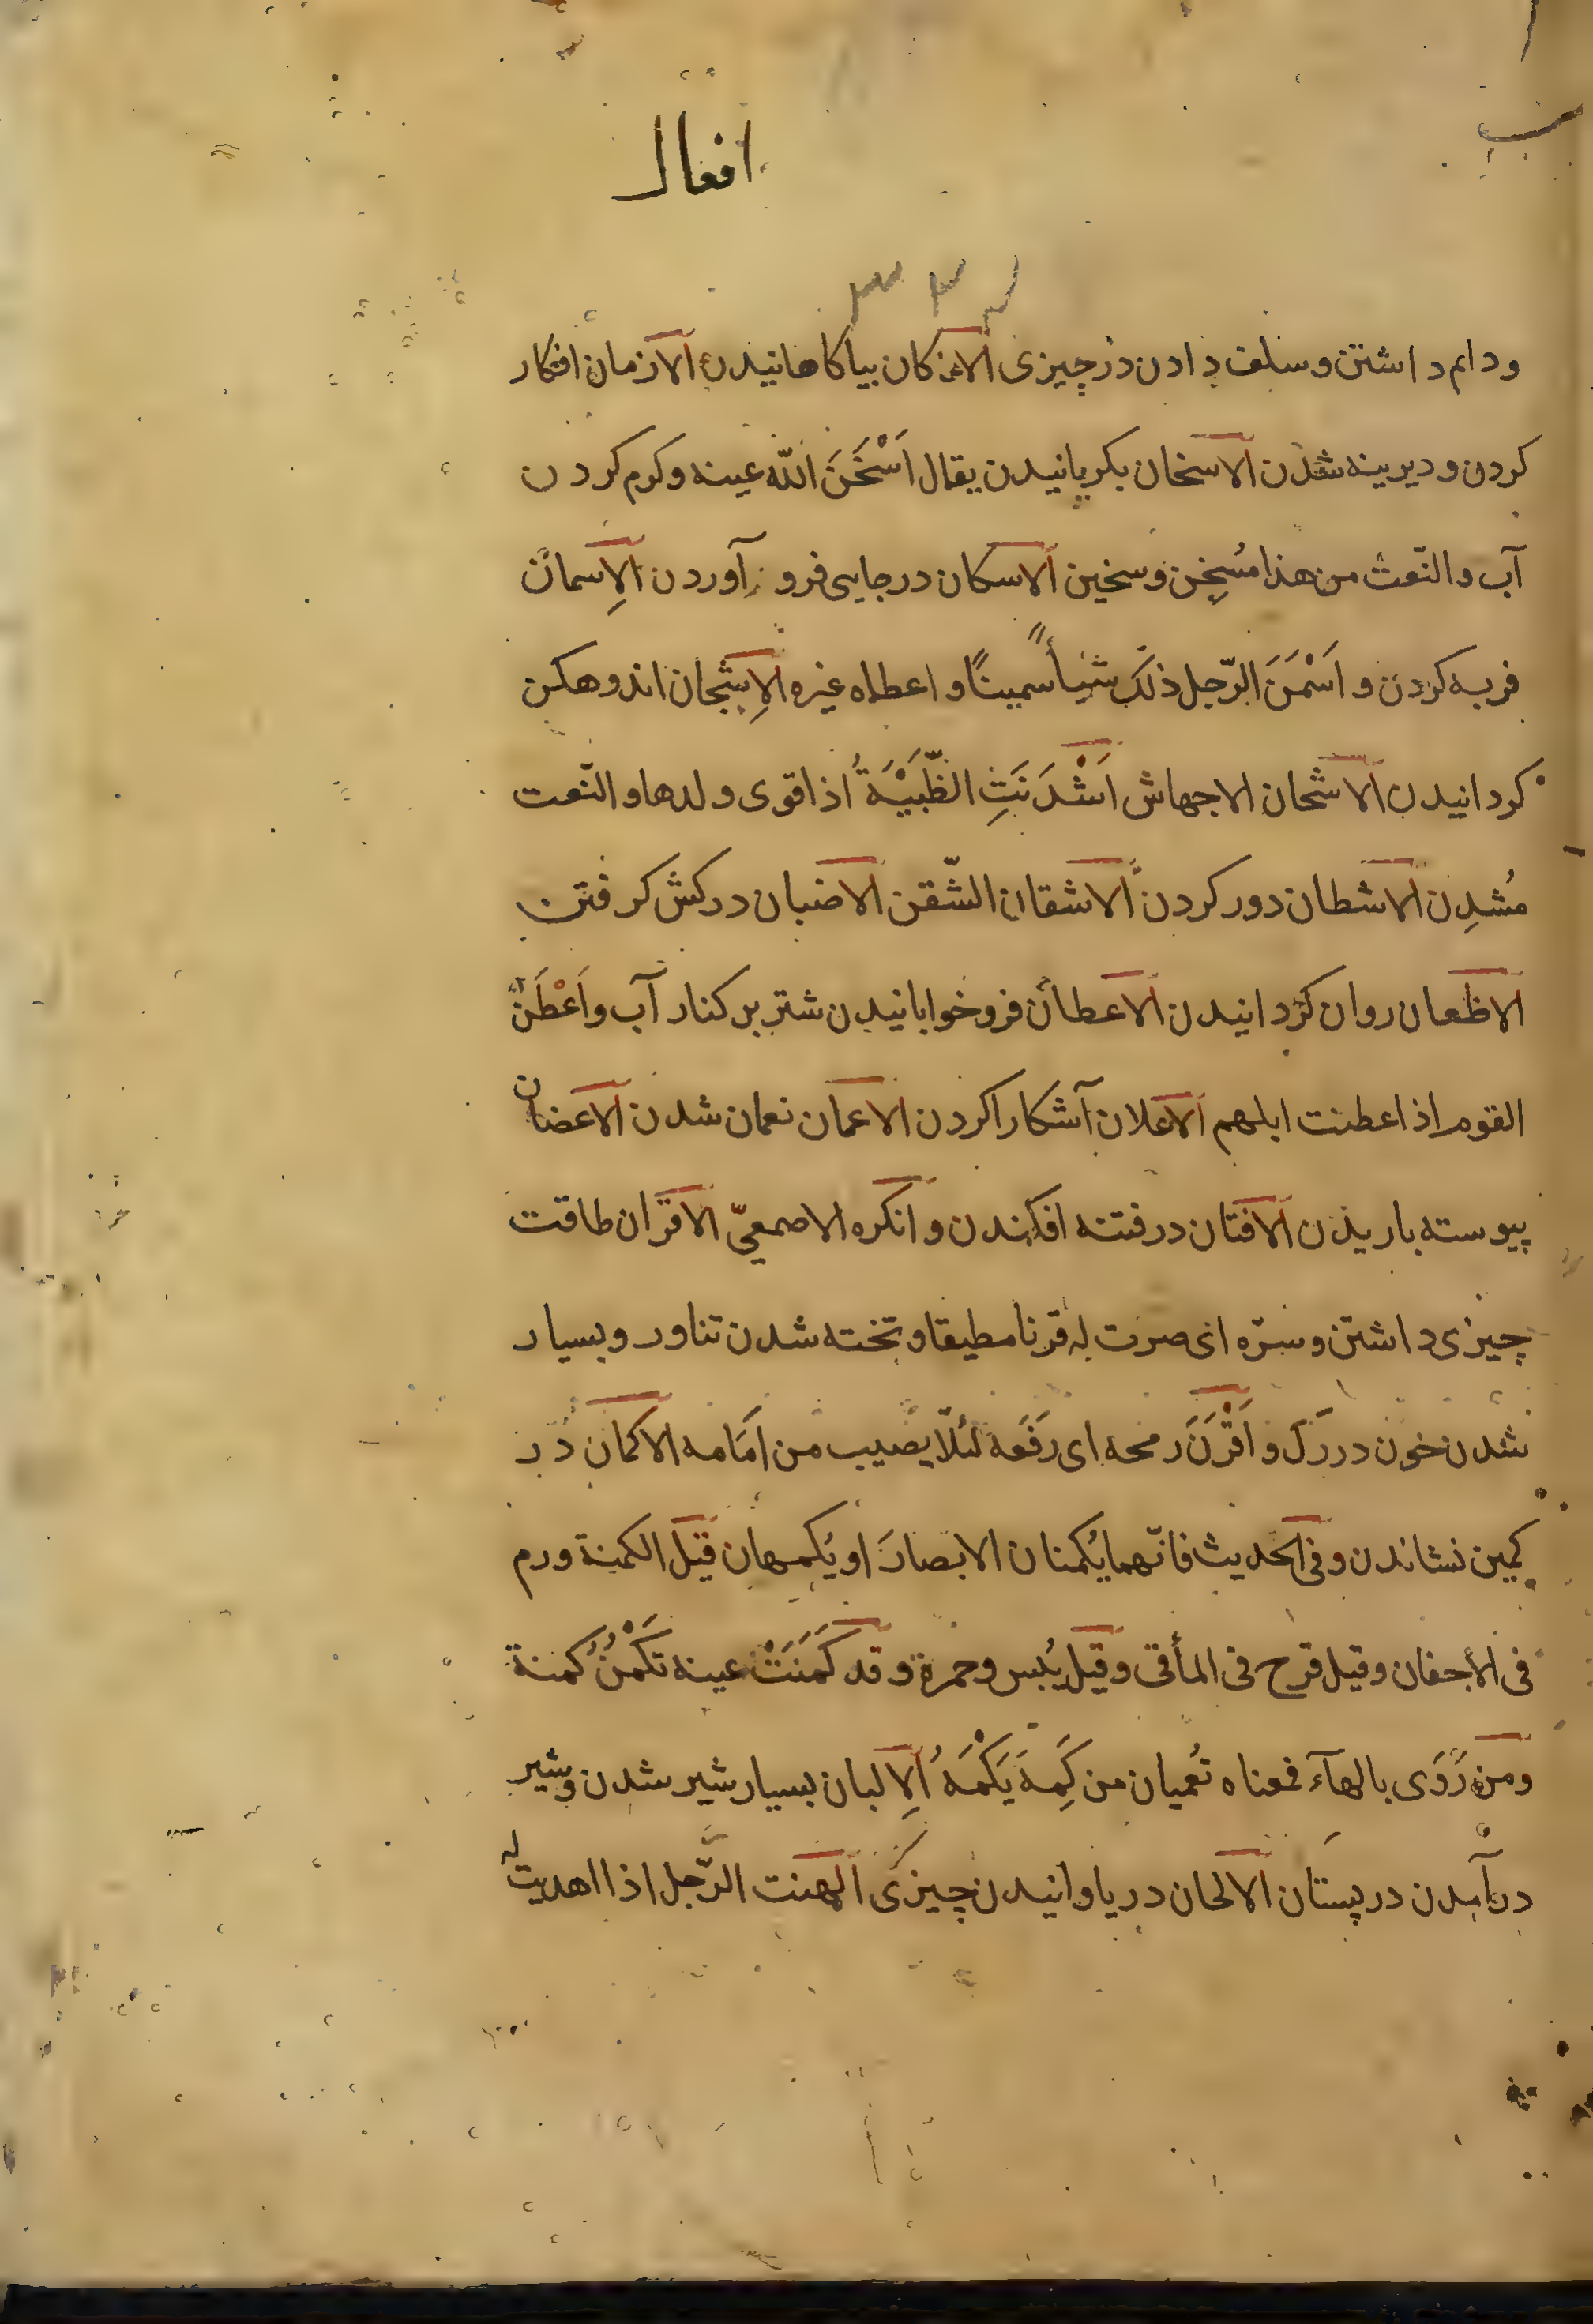 افعال
ودام داشتن وسلف دادن در چیزی الازکان بیاکاهانیدن الازمان افکار
کردن ودیرینه شدن الاسخان بکریانیدن یقال اَسْخَنَ اللّه عینه وکرم کردن
آب والنّعت من هذا مُسخِن وسخین الاسکان درجایی فرو آوردن الاِسمان
فربه کردن واَسْمَنَ الرّجل ذلک شیأ سمینًا واعطاه غیره الاِشجان اندوهکن
کردانیدن الاشحان الاجهاش اَشْدَنَتِ الظَّبْیَةُ اذا قوی ولدها والنّعت
مُشدِن الاشطان دور کردن الاشقان الشّقن الاضبان درکش کرفتن
الاظعان روان کردانیدن الاعطان فروخوابانیدن شتر بر کنار آب واَعْطَنَ
القوم اذا عطنت ابلهم الاعلان آشکارا کردن الاعمان نعمان شدن الاغضان
پیوسته باریذن الافتان درفتنه افکندن وانکره الاصمعیّ الاقران طاقت
چیزی داشتن وسرّه ای صرت له قرنا مطیقا وتخته شدن تناور وبسیار
شدن خون دررک واَقْرَنَ رمحه ای رَفَعَه لئلّا یصیب من اَمَامه الاکمان در
کمین نشاندن وفی الحدیث فانّهما یُکمنان الابصارَ او یُکمهان قیل الکمنة ورم
فی الأجفان وقیل قرح فی المأقی وقیل یُبس وحمرة وقد کَمَنَتْ عینه تَکْمُنُ کمنة
ومن رَوَی بالهآء فمعناه تُعمیان من کَمِهَ یَکْمَهُ اَلِالبان بسیارشیر شدن وشیر
درآمدن درپستان الالحان دریاوانیدن چیزی الهنت الرّجل اذا اهدیت له